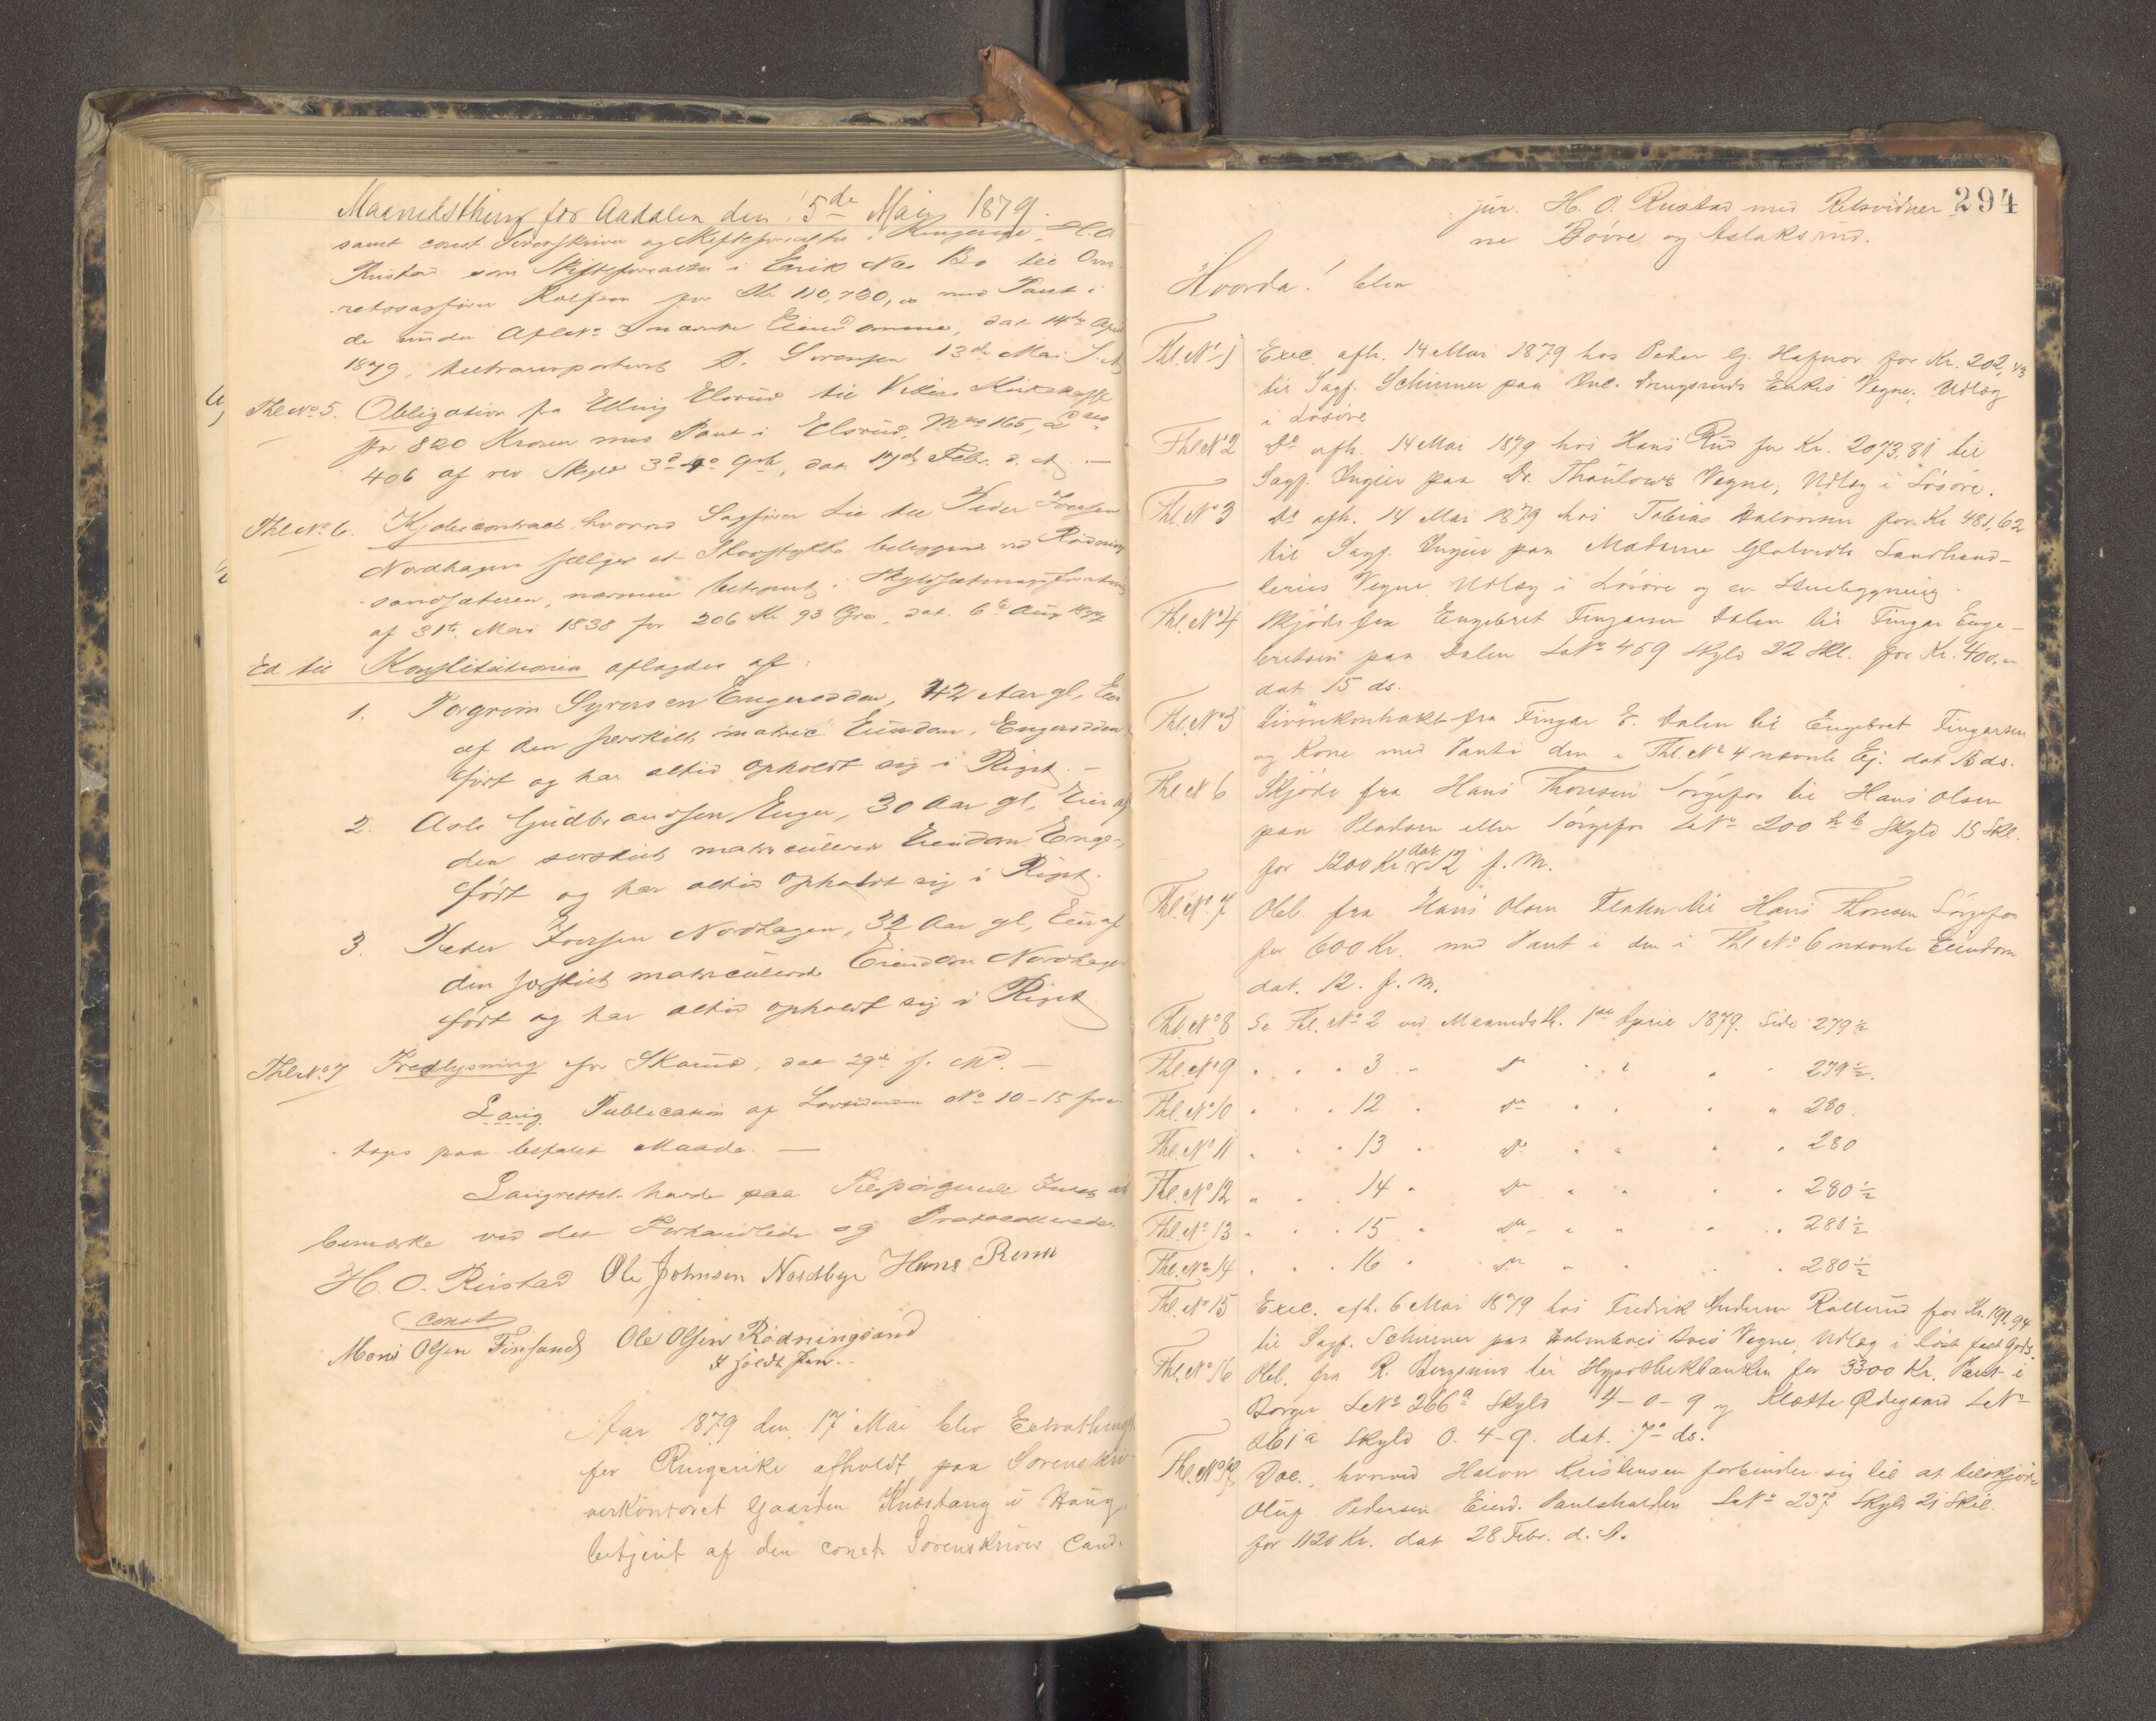 Maanedsthing for Aadalen den 15de Mai 1879.
samt const. Sorenskriver og Skifteforvalter i Ringerike H. O.
Rustad som Skifteforvalter i Erik Næs Bo til Over-
retssagfører Rolfsen for Kr 110,700,00 med Pant i
de under Thl No 3 nævnte Eiendomme, dat 14de April
1879, hertransporteret D. Sørensen 13de Mai
Thl No 5. Obligation fra Elling Elsrud til Vikers Kirkekasse
for 820 Kroner med Pant i Elsrud, Mno 165, Lno
406 af rev. Skyld 3d 4o 9sk, dat. 17de Febr. d. A. —
Thl No 6. Kjøbecontract, hvorved Sagfører Lie til Peder Iversen
Nordhagen sælger et Skovstykke beliggende ved Rødnings-
sandsæteren, nærmere betegnet i Skyldsætningsforretning
af 31te Mai 1838 for 206 Kr 93 Øre, dat. 6te Aug
Ed til Konstitutionen aflagdes af:
1. Torgrim Syversen Engerodden, 42 Aar gl, Eier
af den særskilt matric. Eiendom, Engerodden
født og har altid opholdt sig i Riget. —
2. Asle Gudbrandsen Enger, 30 Aar gl, Eier af
den særskilt matriculerede Eiendom Enger,
født og har altid opholdt sig i Riget.
3. Peder Iversen Nordhagen, 32 Aar gl, Eier af
den særskilt matriculerede Eiendom Nordhagen
født og har altid opholdt sig i Riget
Thl No 7 Fredlysning for Skarud, dat 29de f. Md. —
Publication af No 10-15 fore-
toges paa befalet Maade. —
Laugrettet havde paa Tilspørgende Intet at
bemærke ved det Forhandlede og Protocollerede.
H. O. Rustad Ole Johnsen Nordbye Hans
const
Olsen Finsand Ole Olsen Rødningsand
Aar 1879 den 17 Mai blev Extrathing
for Ringerike afholdt paa Sorenskri-
verkontoret Gaarden Knestang i Haug,
betjent af den const. Sorenskriver Cand.
jur. H. O. Rustad med Retsvidner- 294
ne Børre og Aslaksrud.
Hvorda! blev
Thl. No 1 Exec. afh. 14 Mai 1879 hos Peder G. Hafnor for Kr. 202,43
til Sagf. Schirmer paa Enkes Vegne, Udlæg
i Løsøre
Thl No 2 Do afh. 14 Mai 1879 hos Hans Rud for Kr. 2073,81 til
Sagf. Unger paa Dr. Thaulows Vegne, Udlæg i Løsøre.
Thl. No 3 Do afh. 14 Mai 1879 hos Tobias Halvorsen for Kr 481,62
til Sagf. Unger paa Madame Glatvedts Landhand-
leries Vegne, Udlæg i Løsøre og en Huusbygning.
Thl. No 4 Skjøde fra Engebret Fingarsen Dalen til Fingar Enge-
bretsen paa Dalen LNo 459 Skyld 22 Skl. for Kr. 400,00
dat 15 ds.
Thl. No 5 Livørekontrakt fra Fingar E. Dalen til Engebret Fingarsen
og Kone med Pant i den i Thl. No 4 nævnte Ej. dat 15 ds.
Thl. N 6 Skjøde fra Hans Thoresen Sørgefos til Hans Olsen
paa eller Sørgefos LNo 200 Skyld 15 Skl.
for 1200 Kr dat 12 f. M.
Thl. No. 7 Obl. fra Hans Olsen Flaten til Hans Thoresen Sørgefos
for 600 Kr. med Pant i den i Thl No 6 nævnte Eiendom
dat. 12. f. M.
Thl. No 8 Se Thl. No 2 ved Maanedsth. 1ste April 1879. Side 279 1/2
Thl. No 9 . . . 3 . Do . . . . 279 1/2.
Thl. No 10 . . . 12 . Do . . . . 280.
Thl. No 11 . . . 13 . Do . . . . 280
Thl. No 12 . . . 14 . Do . . . . 280 1/2
Thl. No 13 . . . 15 . Do . . . . 280 1/2
Thl. No 14 . . . 16 . Do . . . . 280 1/2
Thl. No 15 Exec. afh. 6 Mai 1879 hos Fredrik Andersen Rallerud for Kr. 191.94
til Sagf. Schirmer paa Holmboes Boes Vegne, Udlæg i løst fast Gods
Thl. No 16 Obl. fra R. Bergsund til Hypothekbanken for 3300 Kr. Pant i
Borger LNo 266a Skyld 4-0-9 og Klette Ødegaard LNo
261a Skyld 0-4-9. dat. 7de ds.
Thl. No 17 Doc., hvorved Halvor Kristensen forbinder sig til at tilskjøde
Oluf Pedersen Eiend. Paulshalden LNo 237 Skyld 21 Skil.
for 1120 Kr. dat 28 Febr. d. A.